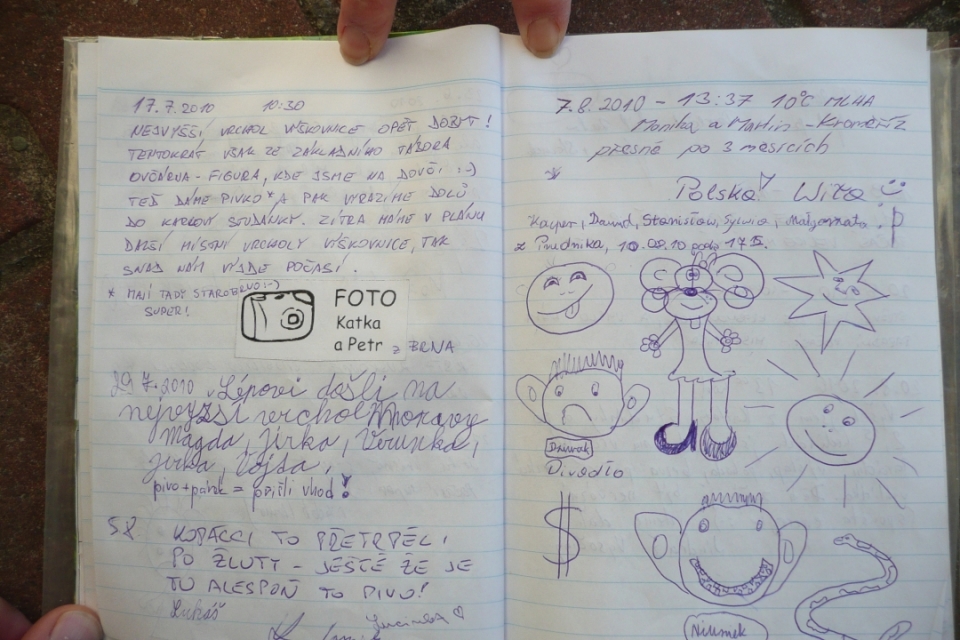 17.7.2010 10:30
NEJVYŠŠÍ VRCHOL VÝŠKOVNICE OPĚT DOBYT!
TENTOKRÁT VŠAK ZE ZÁKLADNÍHO TÁBORA
OVČÁRNA - FIGURA, KDE JSME NA DOVČI :-)
TEĎ DÁME PIVKO* A PAK VYRAZÍME DOLŮ
DO KARLOVY STUDÁNKY. ZÍTRA MÁME V PLÁNU
DALŠÍ MÍSTNÍ VRCHOLY VÝŠKOVNICE, TAK
SNAD NÁM VYJDE POČASÍ.
* MAJÍ TADY STAROBRNO :-)
SUPER!
FOTO
Katka
a Petr z BRNA
29.7.2010 Lépovi došli na
nejvyšší vrchol Moravy
Magda, Jirka, Verunka,
Jirka, Vojta.
pivo + párek = přišli vhod!
5.8. KOPÁČCI TO PŘETRPĚLI
PO ŽLUTÝ - JEŠTĚ ŽE JE
TU ALESPOŇ TO PIVO!
Lukáš
Lucinka
7.8.2010 - 13:37 10°C MLHA
Monika a Martin - Kroměříž
přesně po 3 měsících
Polska Wita :P
Kacper, Dawid, Stanisław, Sylwia, Małgorzata
z Prudnika, 10.08.10
Divadlo
$